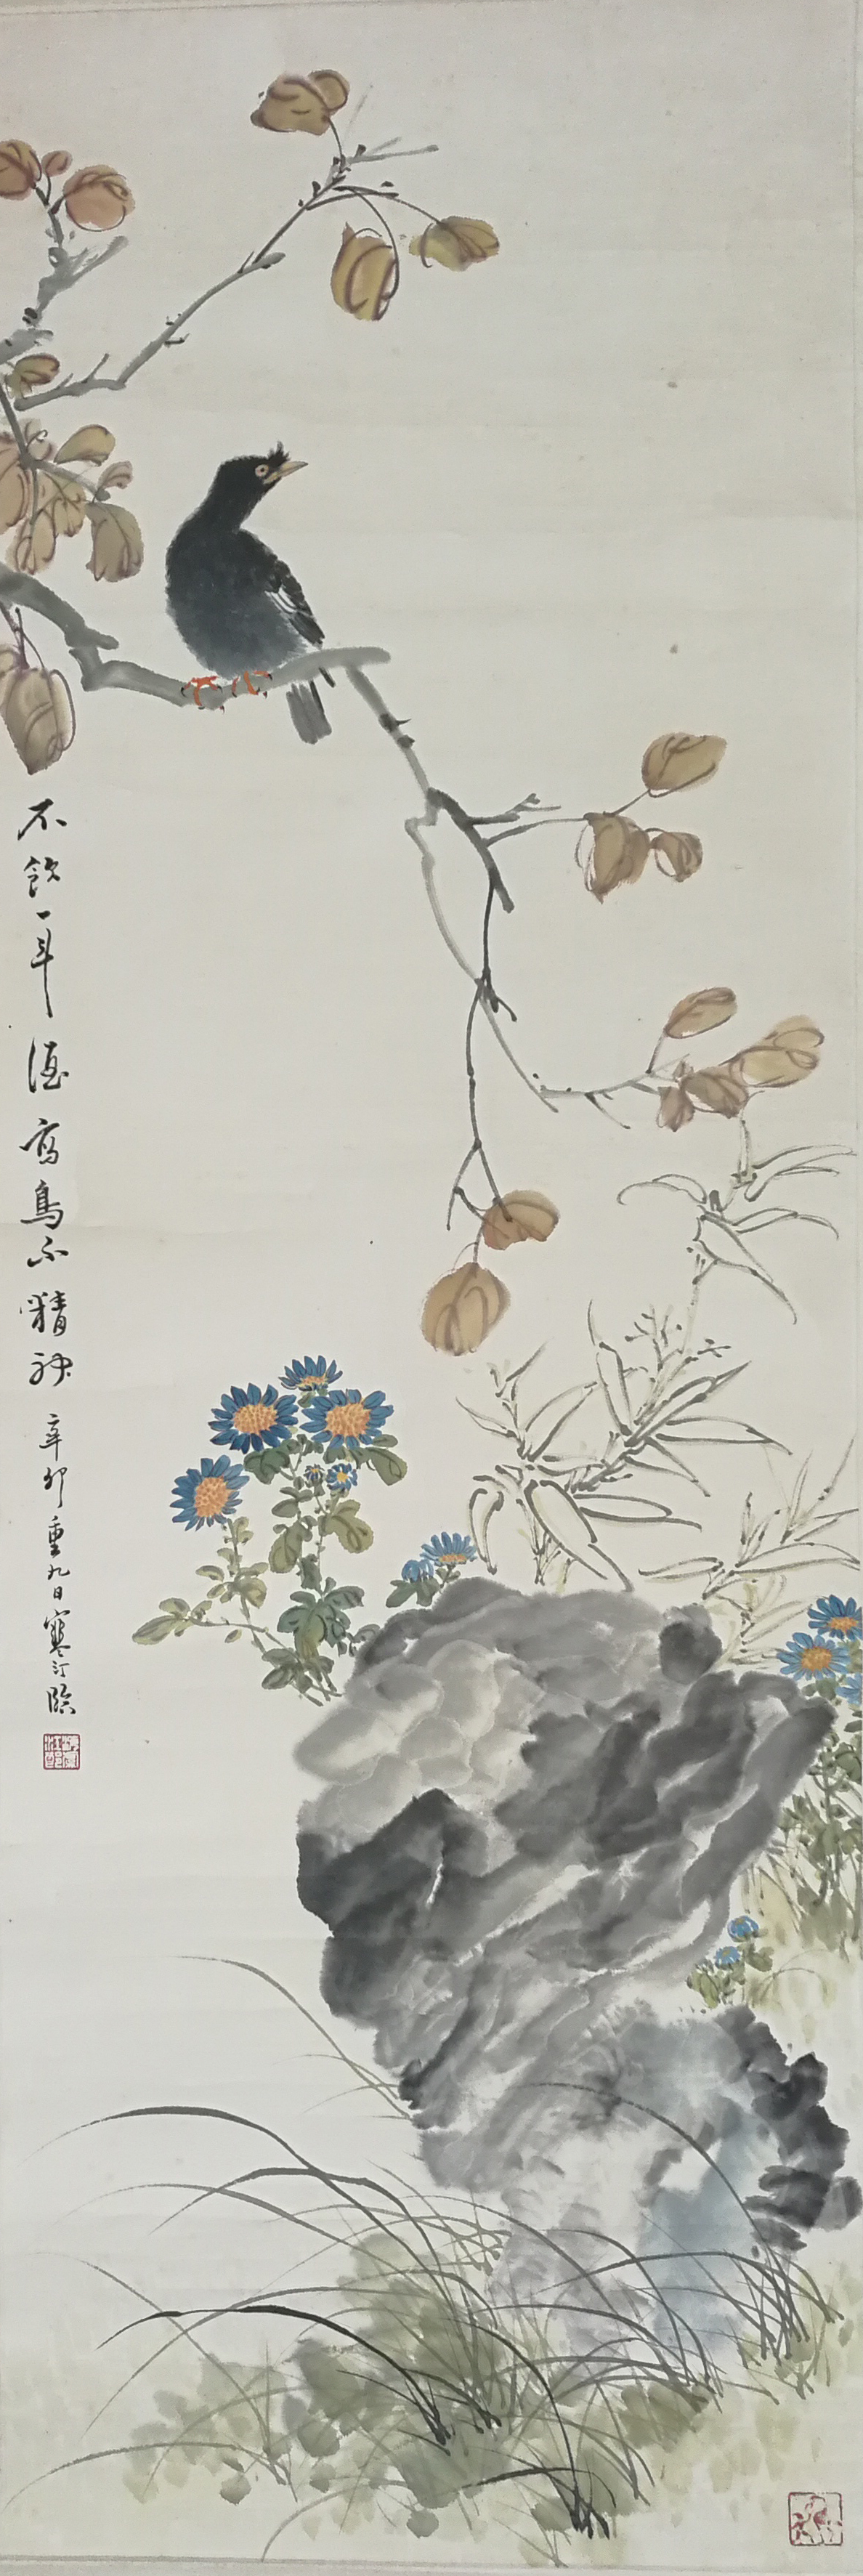 不飲一斗酒寫鳥不精神
辛卯重九日寒汀臨